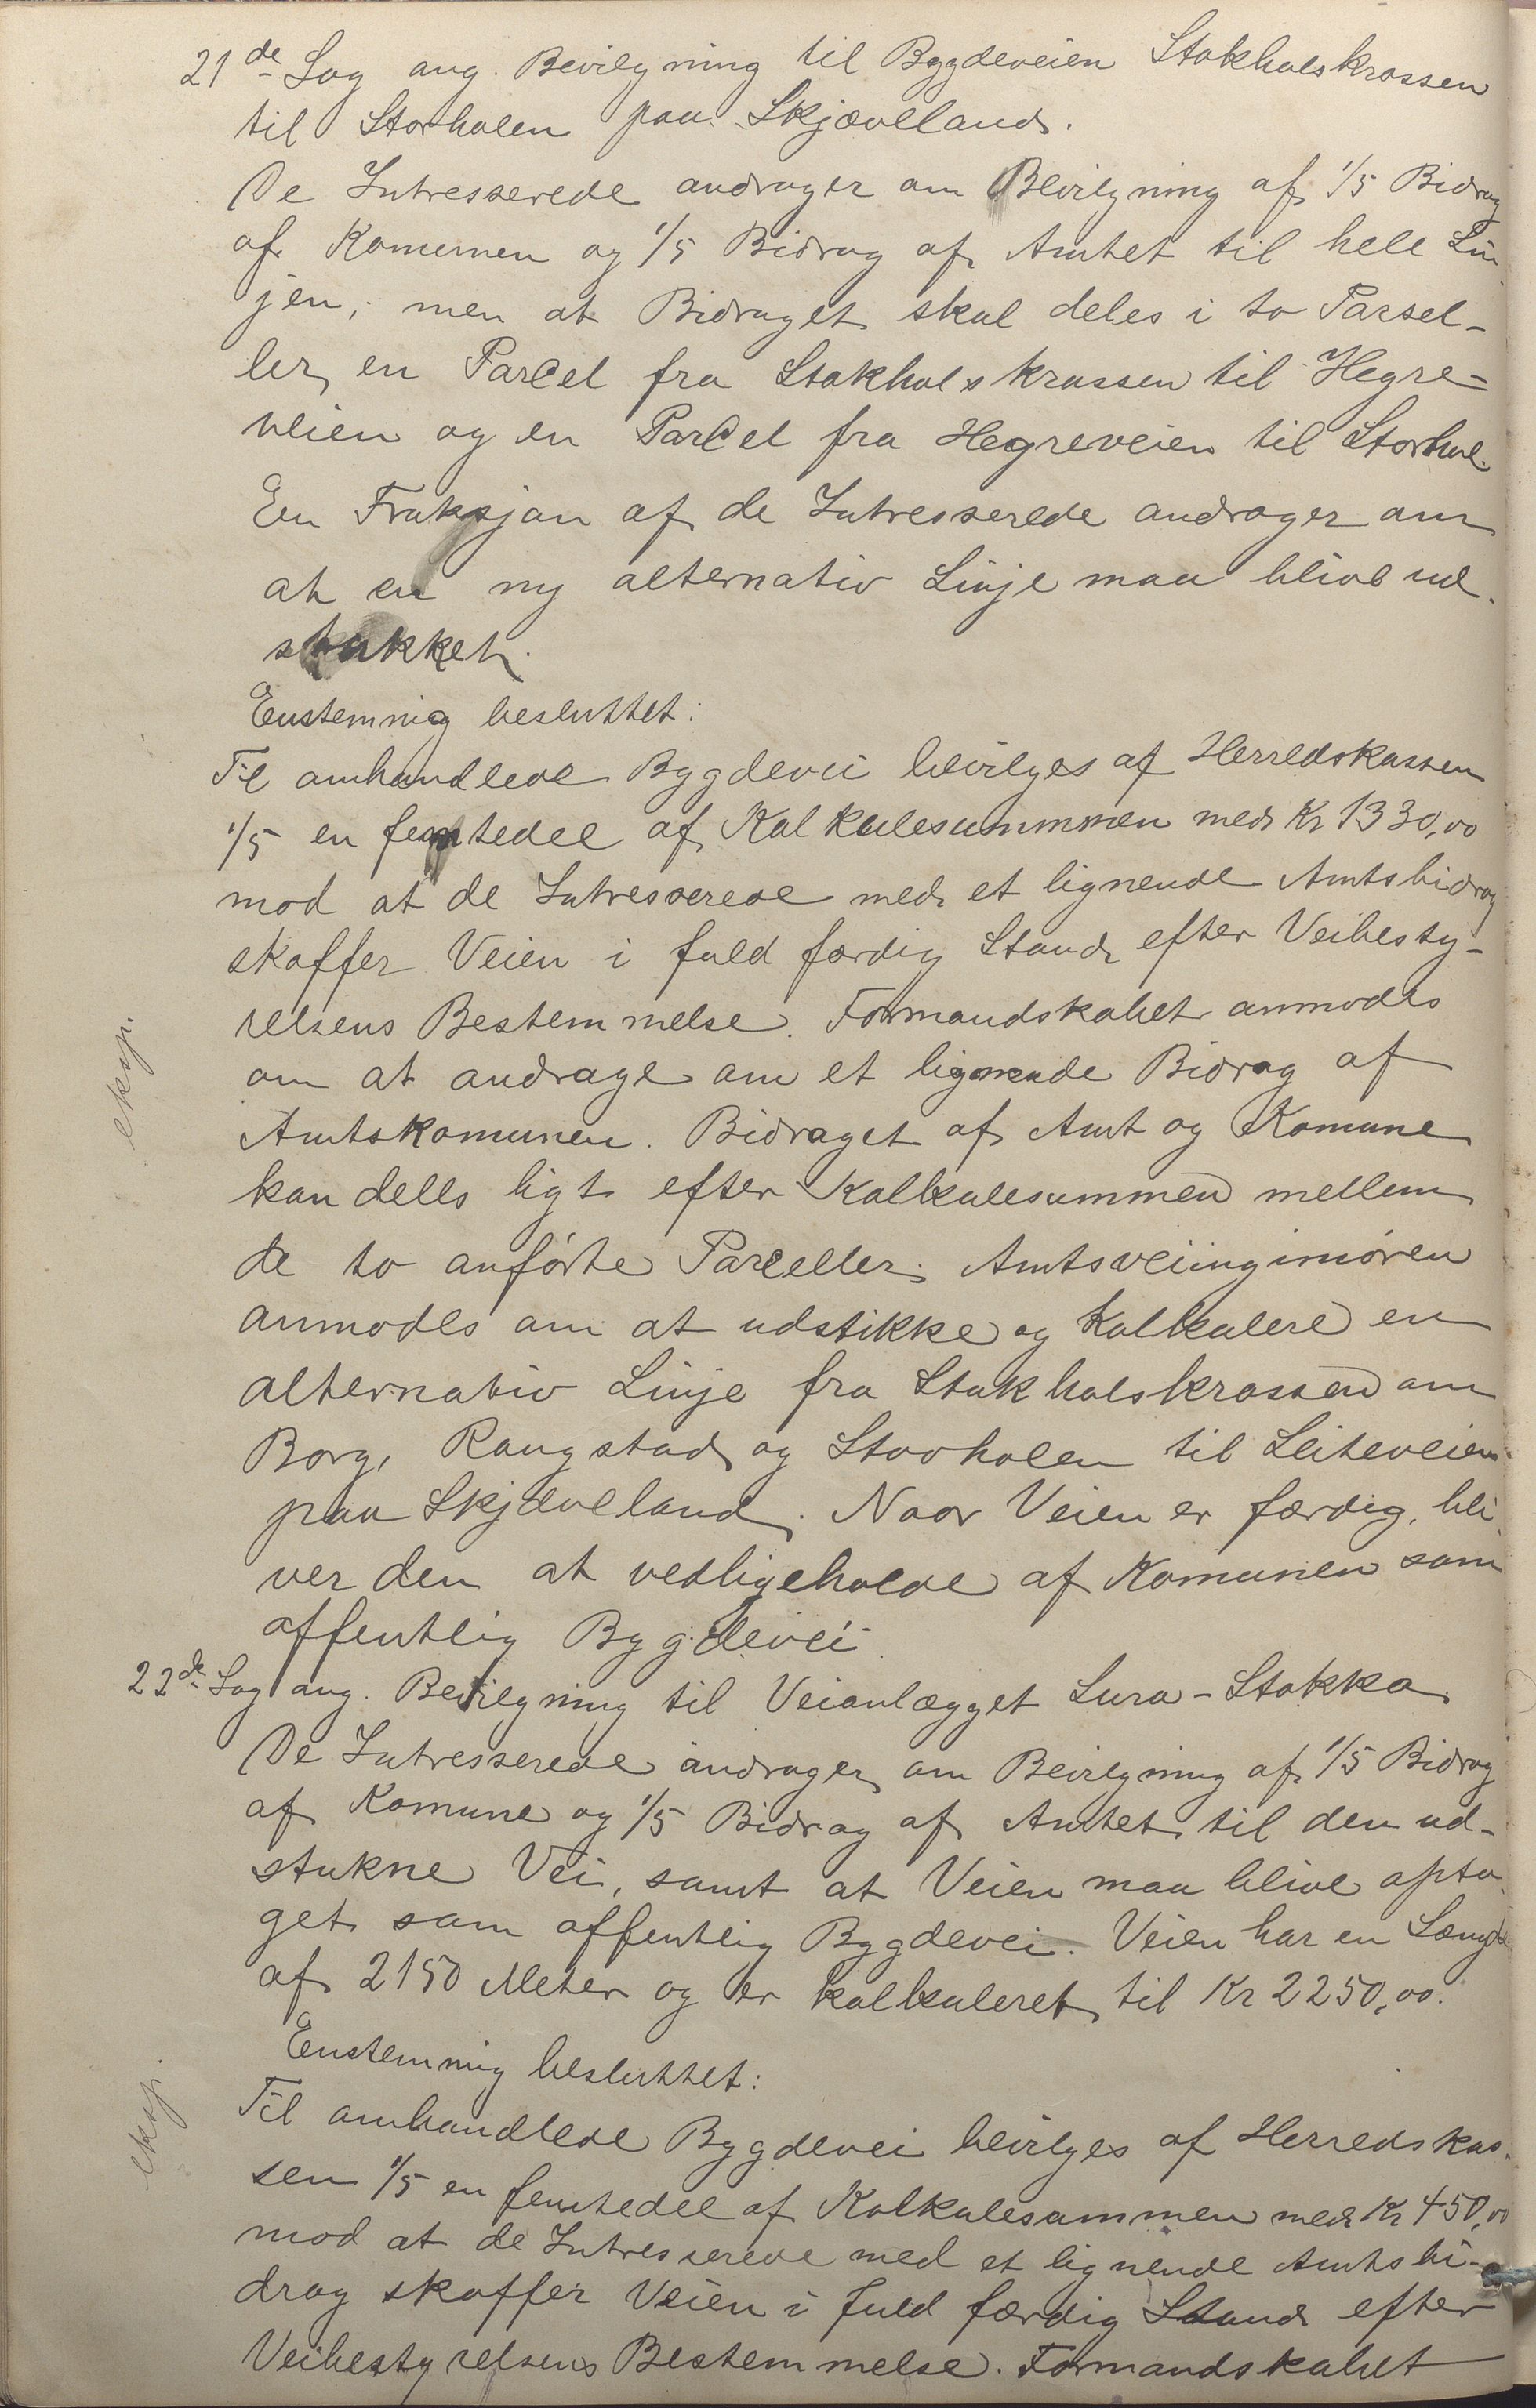 21de Sag ang. Bevilgning til Bygdeveien Stokholskrossen
til Storholen paa Skjævelland.
De Intresserede andrager om Bevilgning af 1/5 Bidrag
af Komunen og 1/5 Bidrag af Amtet til hele Lin
jen, men at Bidraget skal deles i to Parsel-
ler, en Parcel fra Stokholskrossen til Hegre-
veien og en Parcel fra Hegreveien til Storhol.
En Fraksjon af de Intresserede andrager om
at en ny alternativ Linje maa blive ud-
stukket.
Enstemmig besluttet:
Til omhandlede Bygdevei bevilges af Herredskassen
1/5 en femtedel af Kalkulesummen med Kr 1330,00
mod at de Intresserede med et lignende Amtsbidrag
skaffer Veien i fuld færdig Stand efter Veibesty-
relsens Bestemmelse. Formandskabet anmodes
om at andrage om et lignende Bidrag af
Amtskomunen. Bidraget af Amt og Komune
kan deles ligt efter Kalkulesummen mellem
de to anførte Parceller. Amtsveiinginiøren
anmodes om at udstikke og kalkulere en
alternativ Linje fra Stokholskrossen om
Borg, Rangstad og Storholen til Leiteveien
paa Skjævelland. Naar Veien er færdig, bli
ver den at vedligeholde af Komunen som
offentlig Bygdevei.
eksp.
22de Sag ang. Bevilgning til Veianlægget Lura-Stokka
De Intresserede andrager om Bevilgning af 1/5 Bidrag
af Komune og 1/5 Bidrag af Amtet til den ud-
stukne Vei, samt at Veien maa blive opta
get som offentlig Bygdevei. Veien har en Længde
af 2150 Meter og er kalkuleret til Kr 2250,00.
Enstemmig besluttet:
Til omhandlede Bygdevei bevilges af Herredskas-
sen 1/5 en femtedel af Kalkulesummen med Kr 450,00
mod at de Intresserede med et lignende Amtsbi-
drag skaffer Veien i fuld færdig Stand efter
Veibestyrelsens Bestemmelse. Formandskabet
eksp.